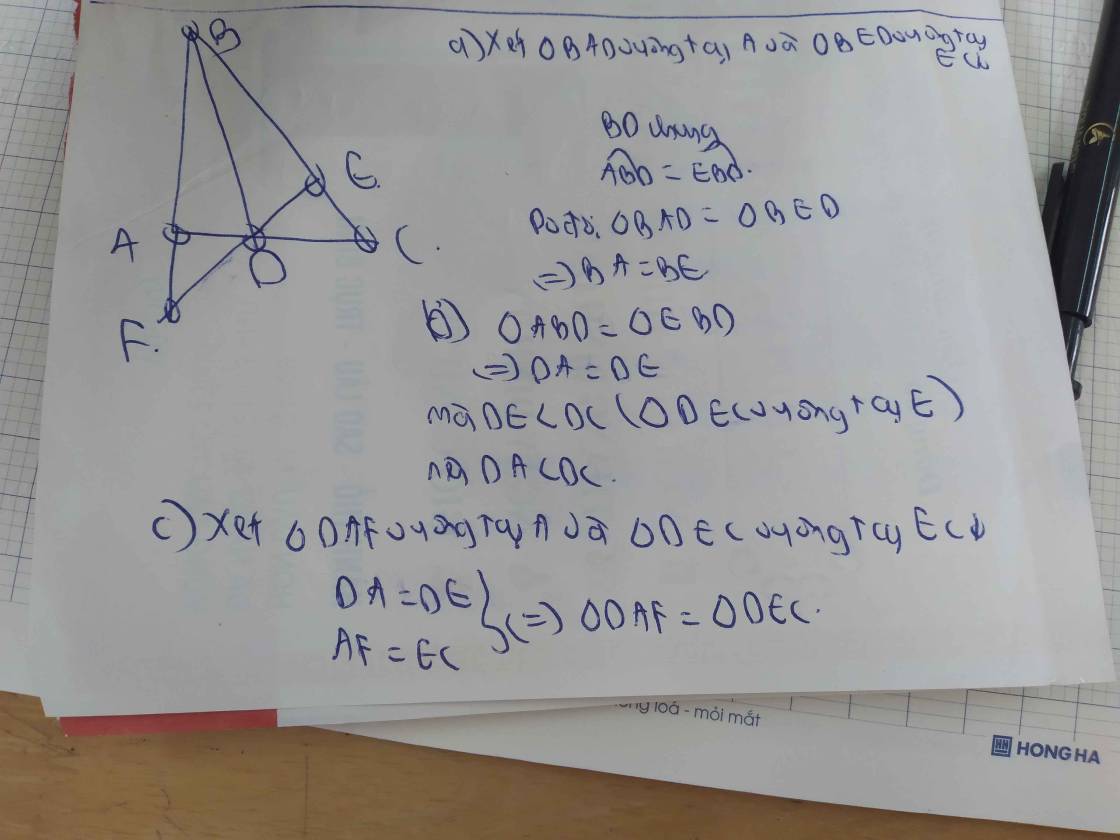 B
E.
A
D
C.
F.
a) Xét ΔBAD vuông tại A và ΔBED vuông tại
E có
BD chung
ABD = EBD.
Do đó: ΔBAD = ΔBED
=> BA = BE
b) ΔABD = ΔEBD
=> DA = DE
mà DE < DC (ΔDEC vuông tại E)
nên DA < DC.
c) Xét ΔDAF vuông tại A và ΔDEC vuông tại E có
DA = DE
AF = EC
=> ΔDAF = ΔDEC.
loá - mỏi mắt
HONG HA